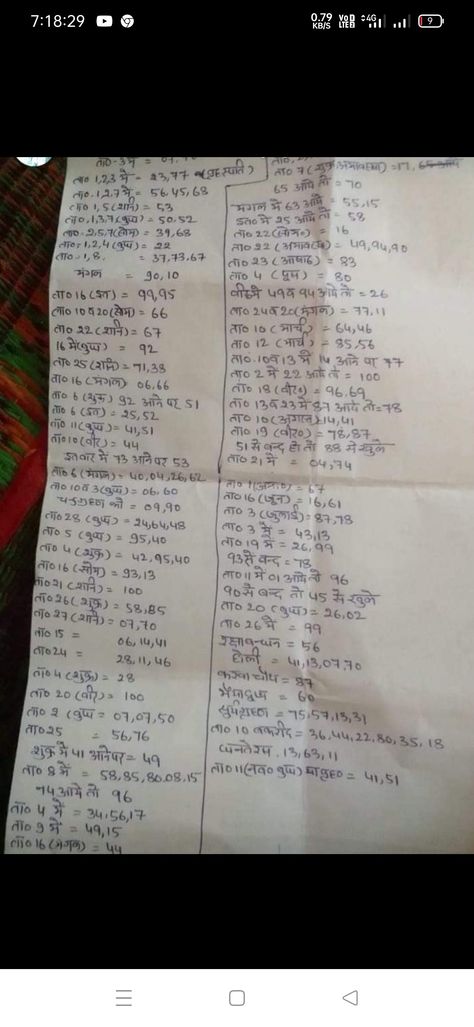 7:18:29
0.79 KB/S
4G
9
ता० 1,2,3 में = 23,77
ता०.1,2,7 में = 56,45,68
ता० 1,5 (शनि) = 53
ता०.1,3,7 (बुध) = 50,52
ता०. 2,5,7 (सोम) = 39,68
ता०. 1,2,4 (बुध) = 22
ता०. 1,8. = 37,73,67
मंगल = 90,10
ता० 16 (इत) = 99,95
ता० 10 व 20 (सोम) = 66
ता० 22 (शनि) = 67
16 में (बुध) = 92
ता० 25 (शनि) = 71,38
ता० 16 (मंगल) 06,66
ता० 6 (शुक्र) 92 आने पर 51
ता० 6 (इत) = 25,52
ता० 11 (बुध) = 41,51
ता० 10 (वीर) = 44
इतवार में 73 आने पर 53
ता० 6 (मंगल) = 40,04,26,62
ता० 10 व 3 (बुध) = 06,60
चन्द्रग्रहण को = 09,90
ता० 28 (बुध) = 24,64,48
ता० 5 (बुध) = 95,40
ता० 4 (शुक्र) = 42,95,40
ता० 16 (सोम) = 93,13
ता० 21 (शनि) = 100
ता० 26 (शुक्र) = 58,85
ता० 27 (शनि) = 07,70
ता० 15 = 06,14,41
ता० 24 = 28,11,46
ता० 4 (शुक्र) = 28
ता० 20 (वीर) = 100
ता० 2 (बुध) = 07,07,50
ता० 25 = 56,76
शुक्र में 41 आने पर = 49
ता० 8 में = 58,85,80,08,15
14 आये तो 96
ता० 4 में = 34,56,17
ता० 9 में = 49,15
ता० 16 (मंगल) = 44
ता० 7 (शुक्र अमावस्या) = 17,
65 आये तो = 70
मंगल में 63 आये = 55,15
इत० में 25 आये तो = 58
ता० 22 (सोम०) = 16
ता० 22 (अमावस्या) = 49,94,90
ता० 23 (आषाढ़) = 83
ता० 4 (बुध) = 80
वीर में 49 व 94 आये तो = 26
ता० 24 व 20 (मंगल) = 77,11
ता० 10 (मार्च) = 64,46
ता० 12 (मार्च) = 85,56
ता० 10 व 13 में 14 आने पर 77
ता० 2 में 22 आये तो = 100
ता० 18 (वीर०) = 96,69
ता० 13 व 23 में 87 आये तो = 78
ता० 10 (अगस्त) = 14,41
ता० 19 (वीर०) = 78,87
51 से बन्द हो तो 88 में खुले
ता० 21 में = 04,74
= 67
ता० 16 (जून) = 16,61
ता० 3 (जुलाई) = 87,78
ता० 3 में = 43,13
ता० 19 में = 26,99
93 से बन्द = 78
ता० 11 में 01 आये तो 96
90 से बन्द तो 45 से खुले
ता० 20 (बुध) = 26,02
ता० 26 में = 99
रक्षाबन्धन = 56
होली = 41,13,07,70
करवा चौथ = 87
भैयादूज = 60
सूर्यग्रहण = 75,57,13,31
ता० 10 बकरीद = 36,44,22,80,35,18
धनतेरस. 13,63,11
ता० 11 (नव० बुध) = 41,51